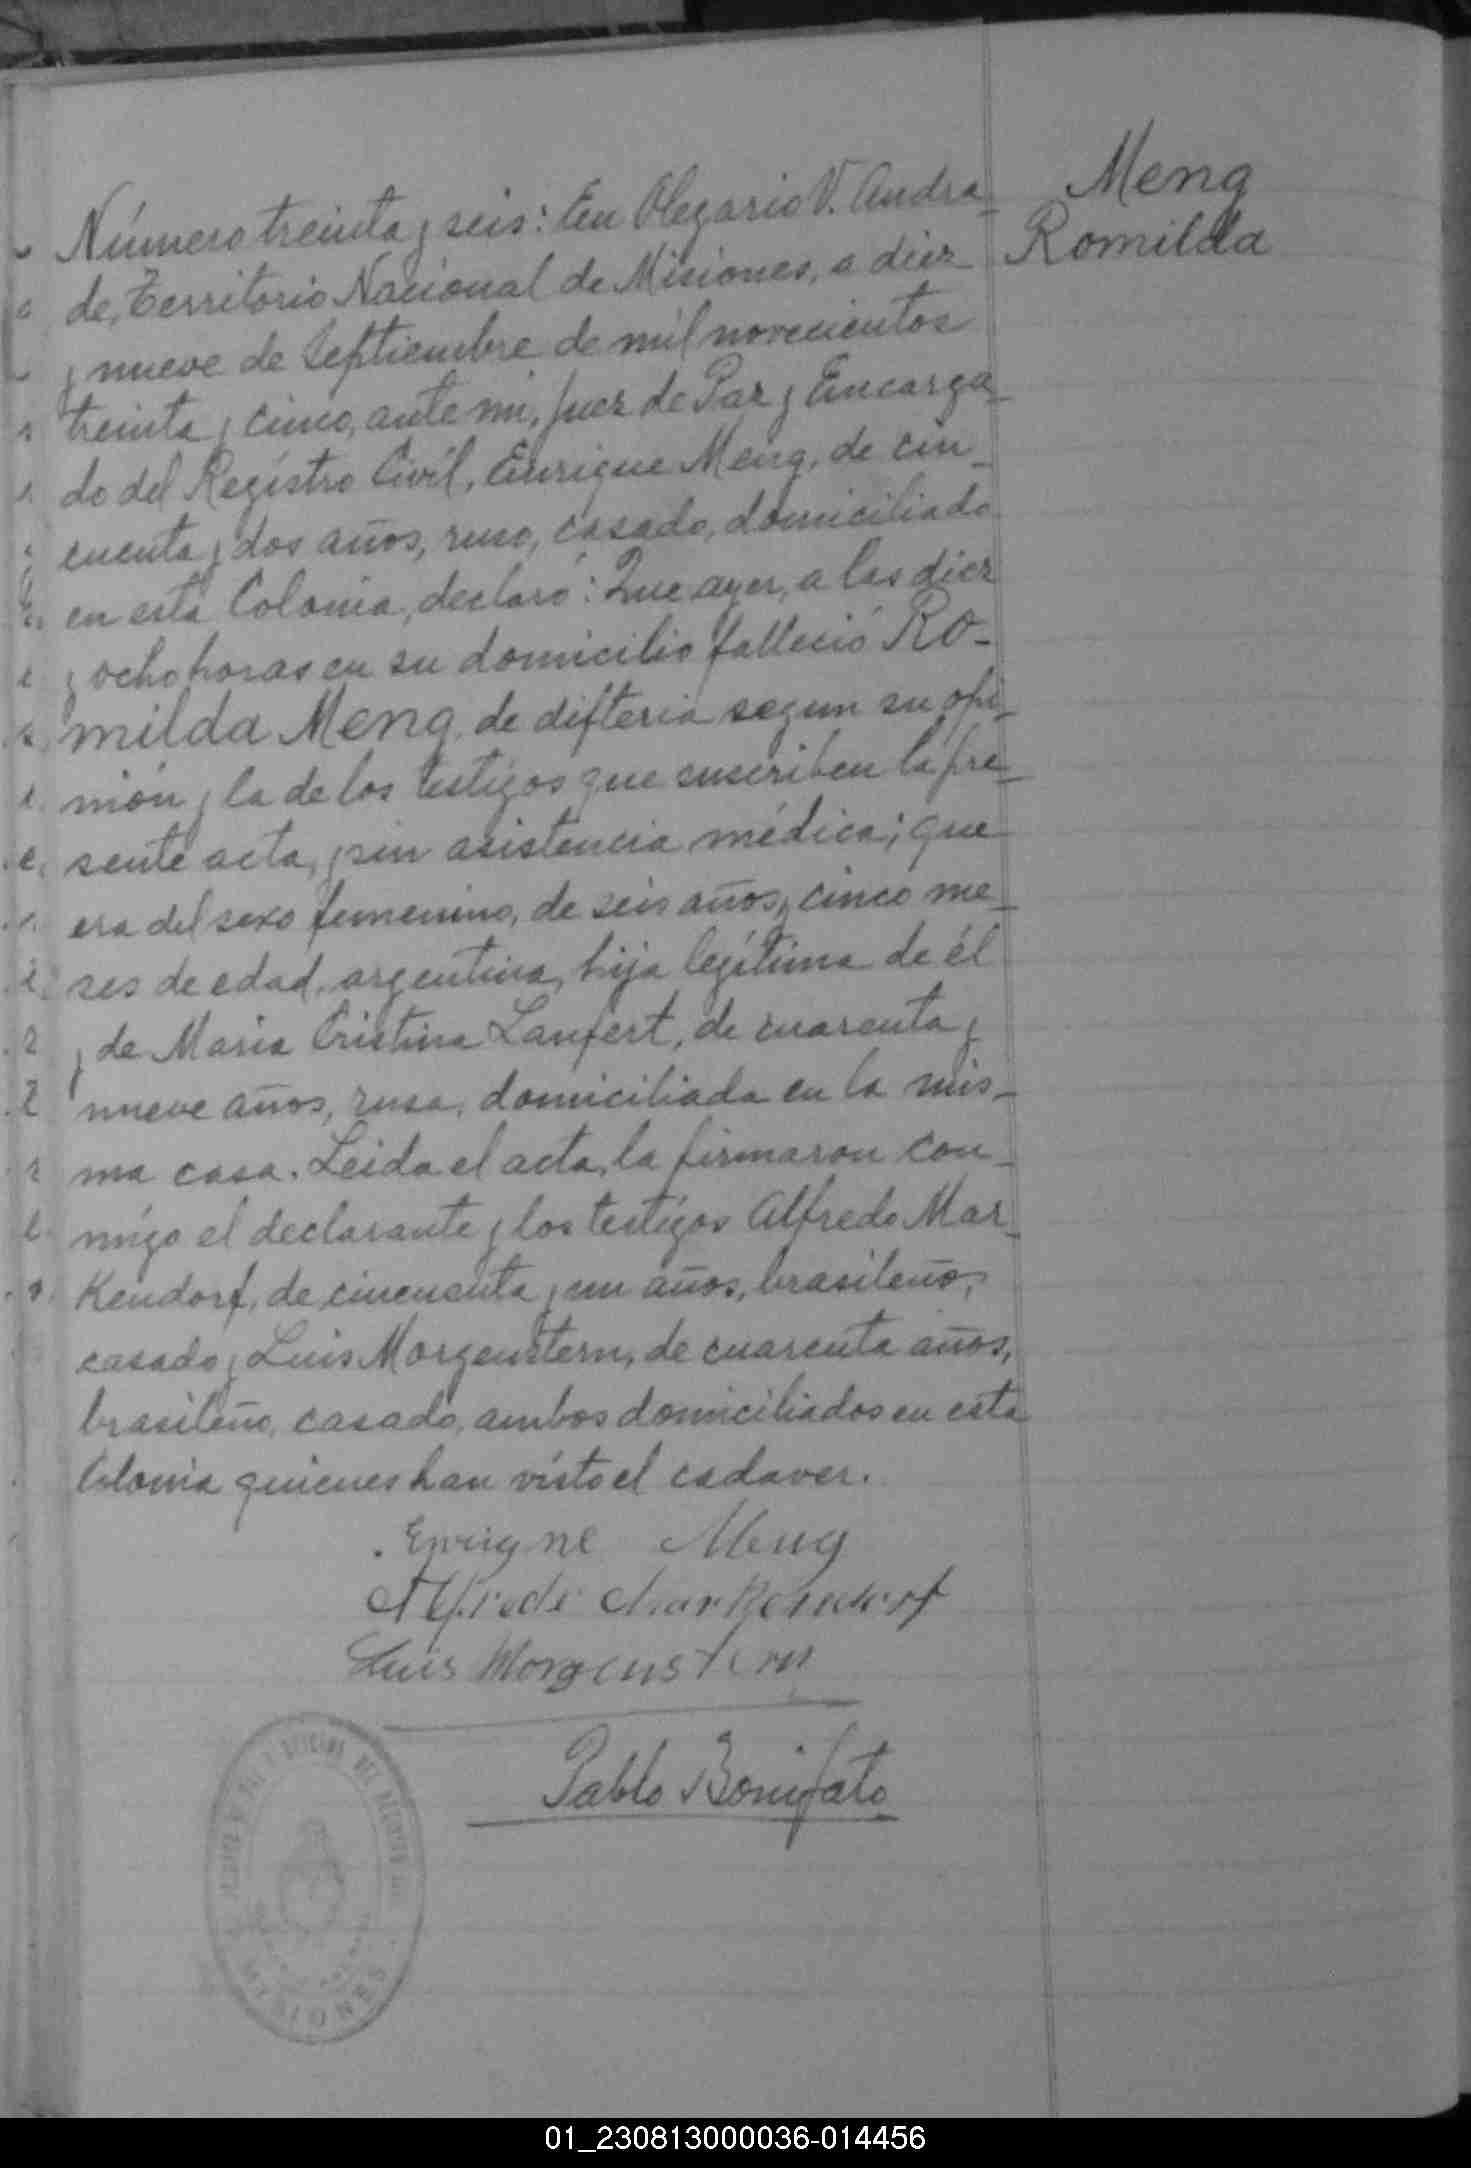 Meng
Romilda
Número treinta y seis: En Olegario V. Andra-
de, Territorio Nacional de Misiones, a diez
y nueve de Septiembre de mil novecientos
treinta y cinco, ante mi, Juez de Paz y Encarga-
do del Registro Civil, Enrique Meng, de cin-
cuenta y dos años, ruso, casado, domiciliado
en esta Colonia, declaró: Que ayer, a las diez
y ocho horas en su domicilio falleció Ro-
milda Meng, de difteria segun su opi-
nión y la de los testigos que suscriben la pre-
sente acta, y sin asistencia médica; que
era del sexo femenino, de seis años y cinco me-
ses de edad, argentina, hija legítima de él
y de Maria Cristina Laufert, de cuarenta y
nueve años, rusa, domiciliada en la mis-
ma casa. Leida el acta, la firmaron con-
migo el declarante y los testigos Alfredo Mar-
Kendorf, de cincuenta y un años, brasileño,
casado y Luis Morgenstern, de cuarenta años,
brasileño, casado, ambos domiciliados en esta
Colonia quienes han visto el cadaver.
Enrigne Meng
Alfredo Markendorf
Luis Morgenstern
Pablo Bonifato
MISIONES
01_230813000036-014456